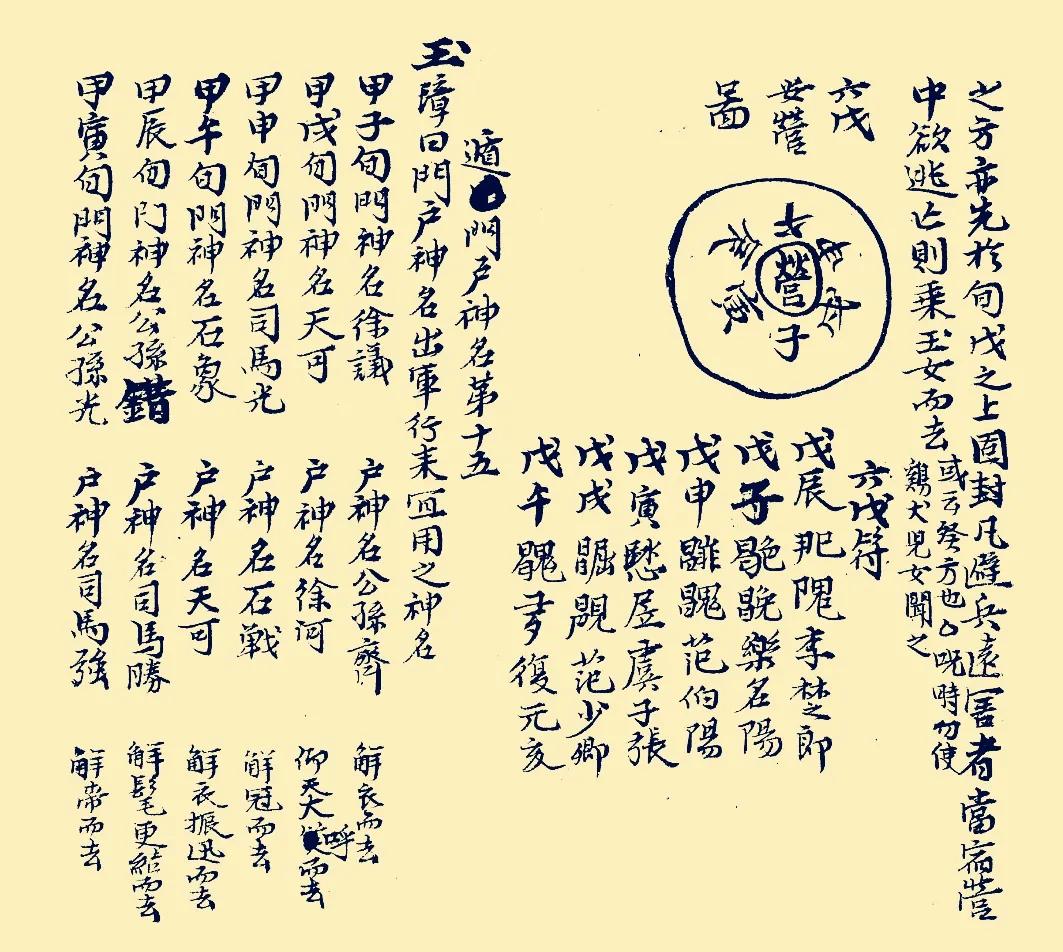 之方亦先於旬戊之上固封凡避兵遠害者當宿營
中欲逃亡則乘玉女而去
或云癸方也
呪時勿使
鷄犬児女聞之
六戊
安營
畐
營
子
六戊符
戊辰 隗李楚郎
戊子 樂名陽
戊申 范伯陽
戊寅 虞子張
戊戌 范少卿
戊午 復元亥
遁門户神名第十五
玉障曰門户神名出軍行来宜用之神名
甲子旬門神名徐議 户神名公孫齊 解衣而去
甲戌旬門神名天可 户神名徐河 仰天大呼而去
甲申旬門神名司馬光 户神名石戦 解冠而去
甲午旬門神名石象 户神名天可 解衣振迅而去
甲辰旬門神名公孫錯 户神名司馬勝 解髦更結而去
甲寅旬門神名公孫光 户神名司馬強 解帶而去